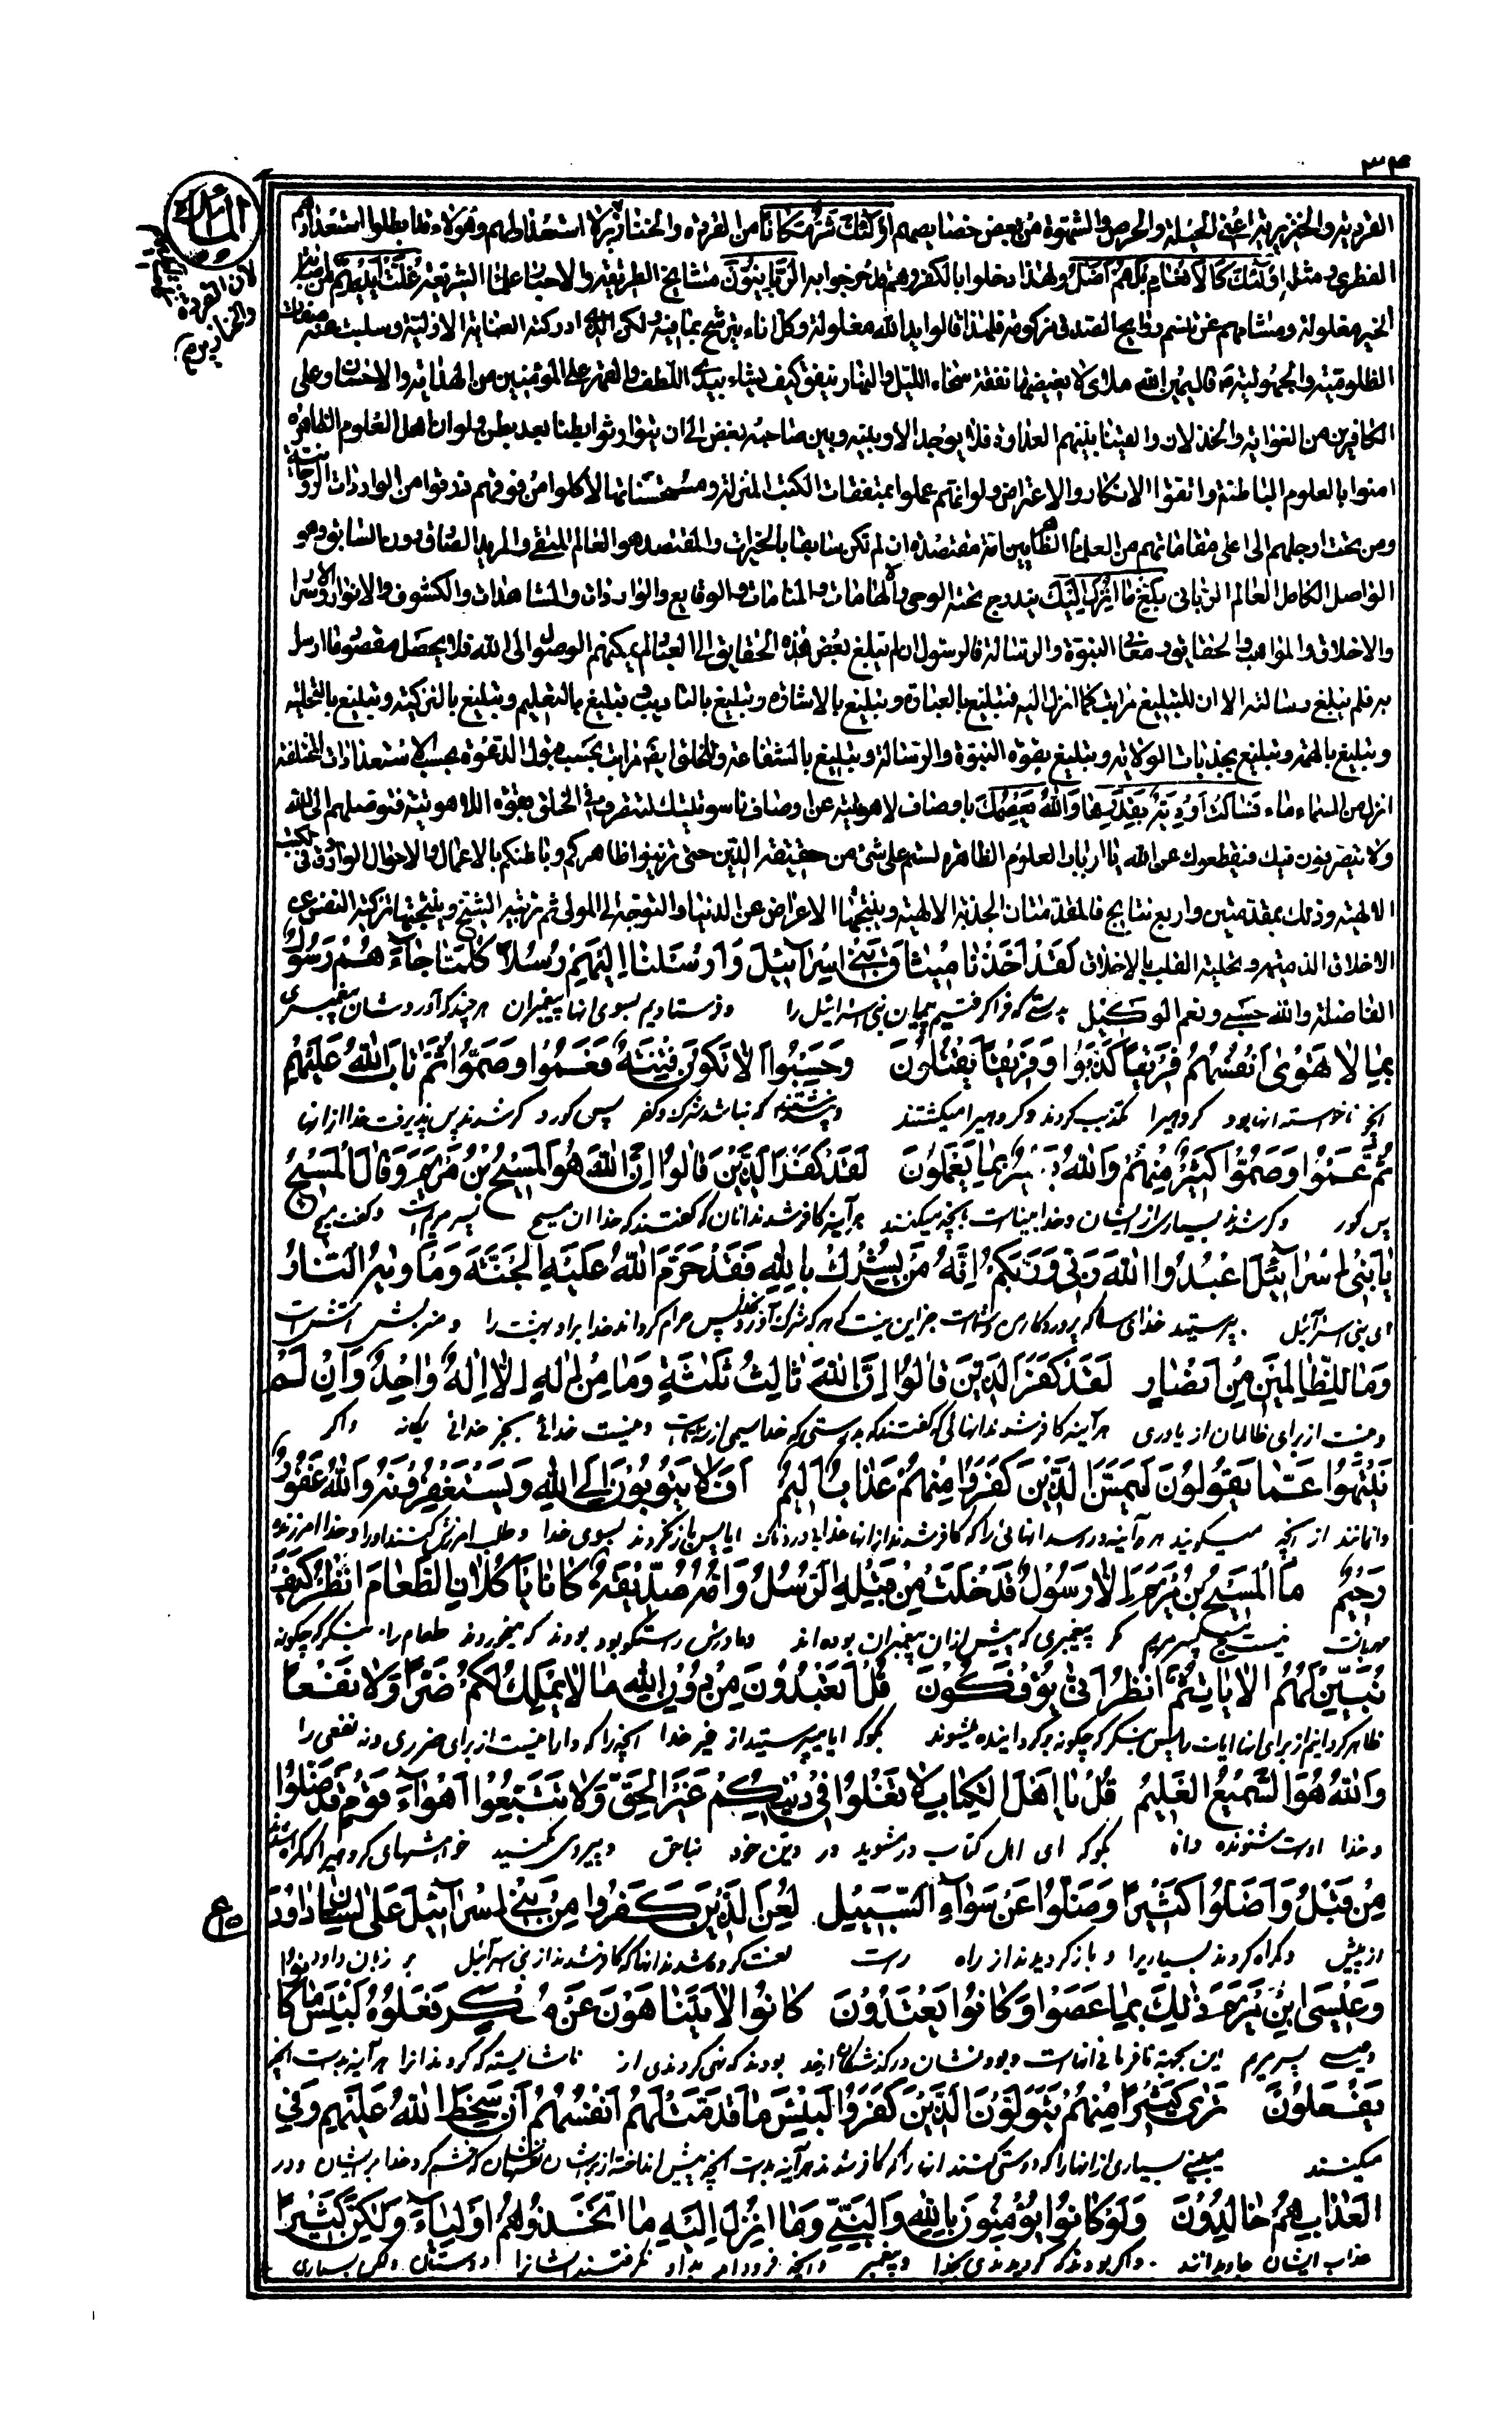 ٣٤
المائدة
لان القردة
والخنازير
القردية والخنزيرية اعنى الحيلة والحرص والشهوة من بعض خصايصهم اولئك شر مكانا من القردة والخنازير لانه لا استعداد لهم وهؤلاء قد ابطلوا استعدادهم
الفطرى مثل اولئك كالانعام بل هم اضل ولهذا دخلوا بالكفر وهم قد خرجوا به الربانيون مشايخ الطريقة والاحبار علماء الشريعة غلت ايديهم
الخير مغلولة ومشامهم عن تنسم روايح الصدق مزكومة فلهذا قالوا يد الله مغلولة وكل اناء يترشح بما فيه ولكن الذى ادركته العناية الازلية وسلبت عنه صفات
الظلومية والجهولية قال يمين الله ملأى لا يغيضها نفقة سخاء الليل والنهار ينفق كيف يشاء بيدى اللطف والقهر على المؤمنين من الهداية والاحسان وعلى
الكافرين من الغواية والخذلان والقينا بينهم العداوة فلا يوجد الا وبينه وبين صاحبه بغض الى ان يتوارثوا بطنا بعد بطن ولو ان اهل العلوم الظاهرة
امنوا بالعلوم الباطنة واتقوا الانكار والاعتراض ولو انهم عملوا بمتفقات الكتب المنزلة ومستحسناتها لاكلوا من فوقهم رزقوا من الواردات الروحانية
ومن تحت ارجلهم الى اعلى مقاماتهم من العلماء الظاهريين امة مقتصدة ان لم تكن سابقا بالخيرات والمقتصد هو العالم المتقى والمريد الصادق دون السابق وهو
الواصل الكامل العالم الربانى بلغ ما انزل اليك يندرج تحته الوحى والالهامات والمنامات والوقايع والواردات والمشاهدات والكشوف والانوار والاسرار
والاخلاق والمواهب والحقايق ومعانى النبوة والرسالة فالرسول ان لم يبلغ بعض هذه الحقايق الى العباد لم يمكنهم الوصول الى الله فلا يحصل مقصود ما ارسل
به فلم يبلغ رسالته الا ان للتبليغ مراتب كما انزل اليه فتبليغ بالعبارة وتبليغ بالاشارة وتبليغ بالتاديب وتبليغ بالتعليم وتبليغ بالتزكية وتبليغ بالتحلية
وتبليغ بالهمة وتبليغ بجذبات الولاية وتبليغ بقوة النبوة والرسالة وتبليغ بالشفاعة وللخلق ايضا مراتب بحسب قبول الدعوة بحسب الاستعدادات المختلفة
انزل من السماء ماء فسالت اودية بقدرها والله يعصمك باوصاف لاهوتية عن اوصاف ناسوتيتك لتتصرف فى الخلق بقوة اللاهوتية فتوصلهم الى الله
ولا يتصرفون فيك فيقطعوك عن الله يا ارباب العلوم الظاهرة لستم على شئ من حقيقة الدين حتى تزينوا ظاهركم وباطنكم بالاعمال والاحوال الواردة فى الكتب
الالهية وذلك بمقدمتين واربع نتايج فالمقدمتان الجذبة الالهية وينتجها الاعراض عن الدنيا والتوجه الى المولى ثم تربية الشيخ وينتجها تزكية النفس عن
الاخلاق الذميمة وتحلية القلب بالاخلاق لَقَدْ اَخَذْنَا مِيثَاقَ بَنِي اِسْرَآئِيلَ وَاَرْسَلْنَا اِلَيْهِمْ رُسُلًا كُلَّمَا جَاءَهُمْ رَسُولٌ
الفاضلة والله حسبى ونعم الوكيل بدرستى كه فرا گرفتيم پيمان بنى اسرائيل را و فرستاديم بسوى انها پيغمبران هر چند كه آوردشان پيغمبرى
بِمَا لَا تَهْوَى اَنْفُسُهُمْ فَرِيقًا كَذَّبُوا وَفَرِيقًا يَقْتُلُونَ وَحَسِبُوا اَلَّا تَكُونَ فِتْنَةٌ فَعَمُوا وَصَمُّوا ثُمَّ تَابَ اللهُ عَلَيْهِمْ
انچه ناخواسته انها بود گروهيرا تكذيب كردند و گروهيرا ميكشتند و پنداشتند كه نباشد شرك و كفر پس كور و كر شدند پس پذيرفت خدا از انها
ثُمَّ عَمُوا وَصَمُّوا كَثِيرٌ مِنْهُمْ وَاللهُ بَصِيرٌ بِمَا يَعْمَلُونَ لَقَدْ كَفَرَ الَّذِينَ قَالُوا اِنَّ اللهَ هُوَ الْمَسِيحُ بْنُ مَرْيَمَ وَقَالَ الْمَسِيحُ
پس كور و كر شدند بسيارى از ايشان و خدا بيناست بانچه ميكنند هر آينه كافر شدند انان كه گفتند كه خدا ان مسيح پسر مريم است و گفت مسيح
يَا بَنِي اِسْرَآئِيلَ اعْبُدُوا اللهَ رَبِّي وَرَبَّكُمْ اِنَّهُ مَنْ يُشْرِكْ بِاللهِ فَقَدْ حَرَّمَ اللهُ عَلَيْهِ الْجَنَّةَ وَمَاْوٰيهُ النَّارُ
اى بنى اسرائيل بپرستيد خداى را كه پروردگار من و شماست جز اين نيست كه هر كه شرك آورد بخدا پس حرام گرداند خدا بر او بهشت را و منزلش آتش است
وَمَا لِلظَّالِمِينَ مِنْ اَنْصَارٍ لَقَدْ كَفَرَ الَّذِينَ قَالُوا اِنَّ اللهَ ثَالِثُ ثَلٰثَةٍ وَمَا مِنْ اِلٰهٍ اِلَّا اِلٰهٌ وَاحِدٌ وَاِنْ لَمْ
و نيست از براى ظالمان از ياورى هر آينه كافر شدند انهائى كه گفتند كه بدرستى كه خدا سيمى از سه است و نيست خدائى بجز خدائى يگانه و اگر
يَنْتَهُوا عَمَّا يَقُولُونَ لَيَمَسَّنَّ الَّذِينَ كَفَرُوا مِنْهُمْ عَذَابٌ اَلِيمٌ اَفَلَا يَتُوبُونَ اِلَى اللهِ وَيَسْتَغْفِرُونَهُ وَاللهُ غَفُورٌ
وانمانند از انچه ميگويند هر آينه در رسد انهائى را كه كافر شدند از انها عذاب دردناك ايا پس باز نگردند بسوى خدا و طلب امرزش كنند او را و خدا امرزنده
رَحِيمٌ مَا الْمَسِيحُ بْنُ مَرْيَمَ اِلَّا رَسُولٌ قَدْ خَلَتْ مِنْ قَبْلِهِ الرُّسُلُ وَاُمُّهُ صِدِّيقَةٌ كَانَا يَاْكُلَانِ الطَّعَامَ انْظُرْ كَيْفَ
مهربانست نيست مسيح پسر مريم مگر پيغمبرى كه پيش از ان پيغمبران بوده اند و مادرش راستگو بود بودند كه ميخوردند طعام را بنگر كه چگونه
نُبَيِّنُ لَهُمُ الْاٰيَاتِ ثُمَّ انْظُرْ اَنّٰى يُؤْفَكُونَ قُلْ اَتَعْبُدُونَ مِنْ دُونِ اللهِ مَا لَا يَمْلِكُ لَكُمْ ضَرًّا وَلَا نَفْعًا
ظاهر كردانيم از براى انها ايات را پس بنگر كه چگونه برگردانيده ميشوند بگو كه ايا ميپرستيد از غير خدا انچه را كه دارا نيست از براى ضررى و نه نفعى را
وَاللهُ هُوَ السَّمِيعُ الْعَلِيمُ قُلْ يَا اَهْلَ الْكِتَابِ لَا تَغْلُوا فِي دِينِكُمْ غَيْرَ الْحَقِّ وَلَا تَتَّبِعُوا اَهْوَاءَ قَوْمٍ قَدْ ضَلُّوا
و خدا اوست شنونده دانا بگو كه اى اهل كتاب در مشويد در دين خود بناحق و پيروى مكنيد خواهشهاى گروهيرا كه گمراه شدند
مِنْ قَبْلُ وَاَضَلُّوا كَثِيرًا وَضَلُّوا عَنْ سَوَاءِ السَّبِيلِ لُعِنَ الَّذِينَ كَفَرُوا مِنْ بَنِي اِسْرَآئِيلَ عَلٰى لِسَانِ دَاوُدَ
از پيش و گمراه كردند بسياريرا و باز گرديدند از راه راست لعنت كرده شدند انها كه كافر شدند از بنى اسرائيل بر زبان داود
وَعِيسَى ابْنِ مَرْيَمَ ذٰلِكَ بِمَا عَصَوْا وَكَانُوا يَعْتَدُونَ كَانُوا لَا يَتَنَاهَوْنَ عَنْ مُنْكَرٍ فَعَلُوهُ لَبِئْسَ مَا كَانُوا
و عيسى پسر مريم اين بجهة نافرمانى انهاست و بودنشان در گذشتگان ايند بودند كه نهى كردندى از ناشايسته كه كردند انرا هر آينه بدست انچه
يَفْعَلُونَ تَرٰى كَثِيرًا مِنْهُمْ يَتَوَلَّوْنَ الَّذِينَ كَفَرُوا لَبِئْسَ مَا قَدَّمَتْ لَهُمْ اَنْفُسُهُمْ اَنْ سَخِطَ اللهُ عَلَيْهِمْ وَفِي
ميكنند ميبينى بسيارى از انها را كه دوستى كنند انها را كه كافر شدند هر آينه بدست انچه پيش انداخته از براشان نفسهاشان كه خشم كرد خدا بر ايشان و در
الْعَذَابِ هُمْ خَالِدُونَ وَلَوْ كَانُوا يُؤْمِنُونَ بِاللهِ وَالنَّبِيِّ وَمَا اُنْزِلَ اِلَيْهِ مَا اتَّخَذُوهُمْ اَوْلِيَاءَ وَلٰكِنَّ كَثِيرًا
عذاب ايشان جاويدانند و اگر بودند كه گرويدندى بخدا و پيغمبر و انچه فرود امد باو نگرفتند ايشانرا دوستان و لكن بسيارى